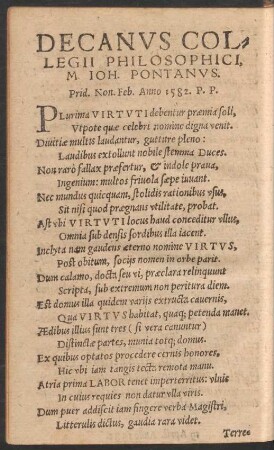 DECANVS COL-
LEGII PHILOSOPHICI,
M. IOH. PONTANVS.
Prid. Non. Feb. Anno 1582. P. P.
PLurima VIRTVTI debentur præmia soli,
Vtpote quæ celebri nomine digna venit.
Diuitiæ multis laudantur, gutture pleno:
Laudibus extollunt nobile stemma Duces.
Non rarò fallax præfertur, & indole praua,
Ingenium: multos friuola sæpe iuuant.
Nec mundus quicquam, stolidis rationibus vsus,
Sit nisi quod prægnans vtilitate, probat.
Ast vbi VIRTVTI locus haud conceditur vllus,
Omnia sub densis sordibus illa iacent.
Inclyta nam gaudens æterno nomine VIRTVS,
Post obitum, socijs nomen in orbe parit.
Dum calamo, docta seu vi, præclara relinquunt
Scripta, sub extremum non peritura diem.
Est domus illa quidem varijs extructa cauernis,
Qua VIRTVS habitat, quaq; petenda manet.
Ædibus illius sunt tres (si vera canuntur)
Distinctæ partes, munia totq; domus.
Ex quibus optatos procedere cernis honores,
Hic vbi iam tangis tecta remota manu.
Atria prima LABOR tenet imperterritus: vlnis
In cuius requies non datur vlla viris.
Dum puer addiscit iam fingere verba Magistri,
Litterulis dictus, gaudia rara videt.
Terree